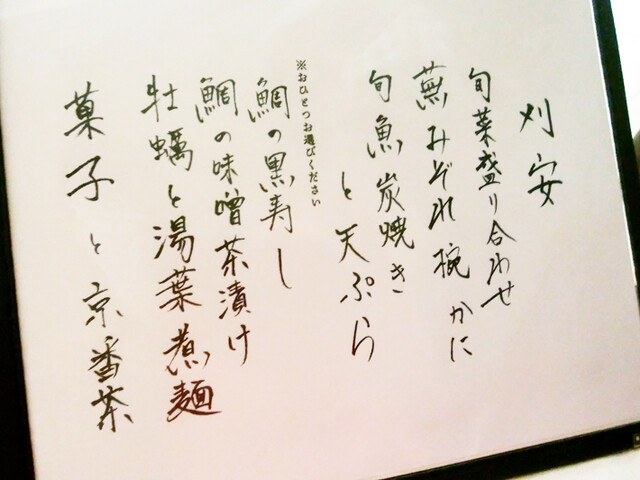 刈安
旬菜盛り合わせ
蕪みぞれ椀 かに
旬魚炭焼き
と天ぷら
※おひとつお選びください
鯛の黒寿し
鯛の味噌茶漬け
牡蠣と湯葉煮麺
菓子と京番茶